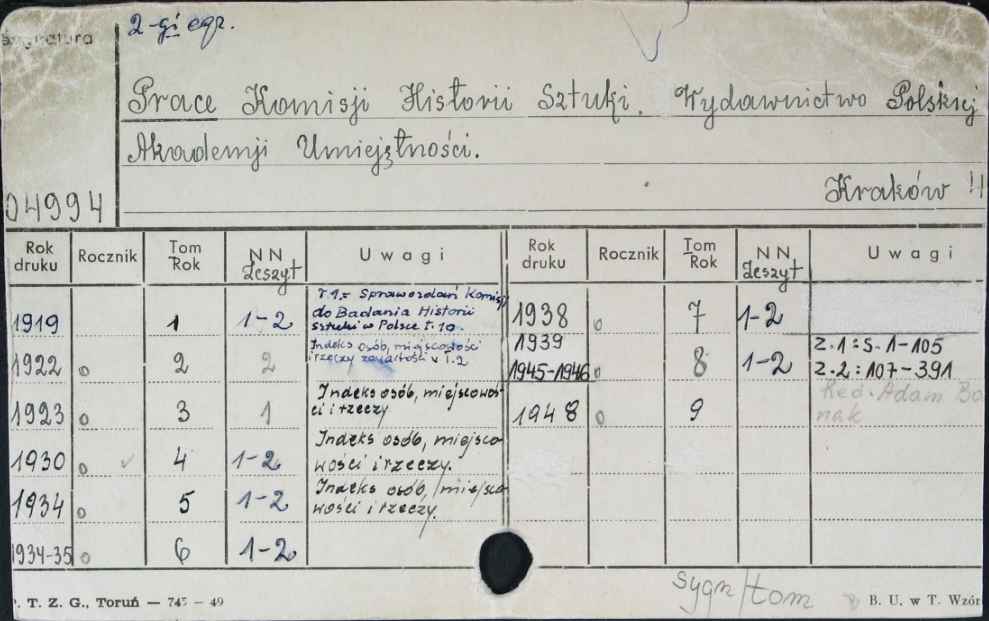 2-gi egz.
Sygnatura
Prace Komisji Historii Sztuki. Wydawnictwo Polskiej
Akademji Umiejętności.
Kraków 4
04994
Rok druku Rocznik Tom Rok NN Zeszyt Uwagi Rok druku Rocznik Tom Rok NN Zeszyt Uwagi
1919 1 1-2 T.1 = Sprawozdań Komisji
do Badania Historii
sztuki w Polsce T. 10.
1922 o 2 2 Indeks osób, miejscowości
i rzeczy T.2
1923 o 3 1 Indeks osób, miejscowoś
ci i rzeczy
1930 o 4 1-2 Indeks osób, miejsco
wości i rzeczy.
1934 o 5 1-2 Indeks osób, miejsco
wości i rzeczy.
1934-35 o 6 1-2
1938 o 7 1-2
1939
1945-1946 o 8 1-2 Z.1: S. 1-105
Z.2: 107-391
1948 o 9 Red. Adam Bo
nak
sygn/tom
P. T. Z. G., Toruń — 745 — 49
B. U. w T. Wzór